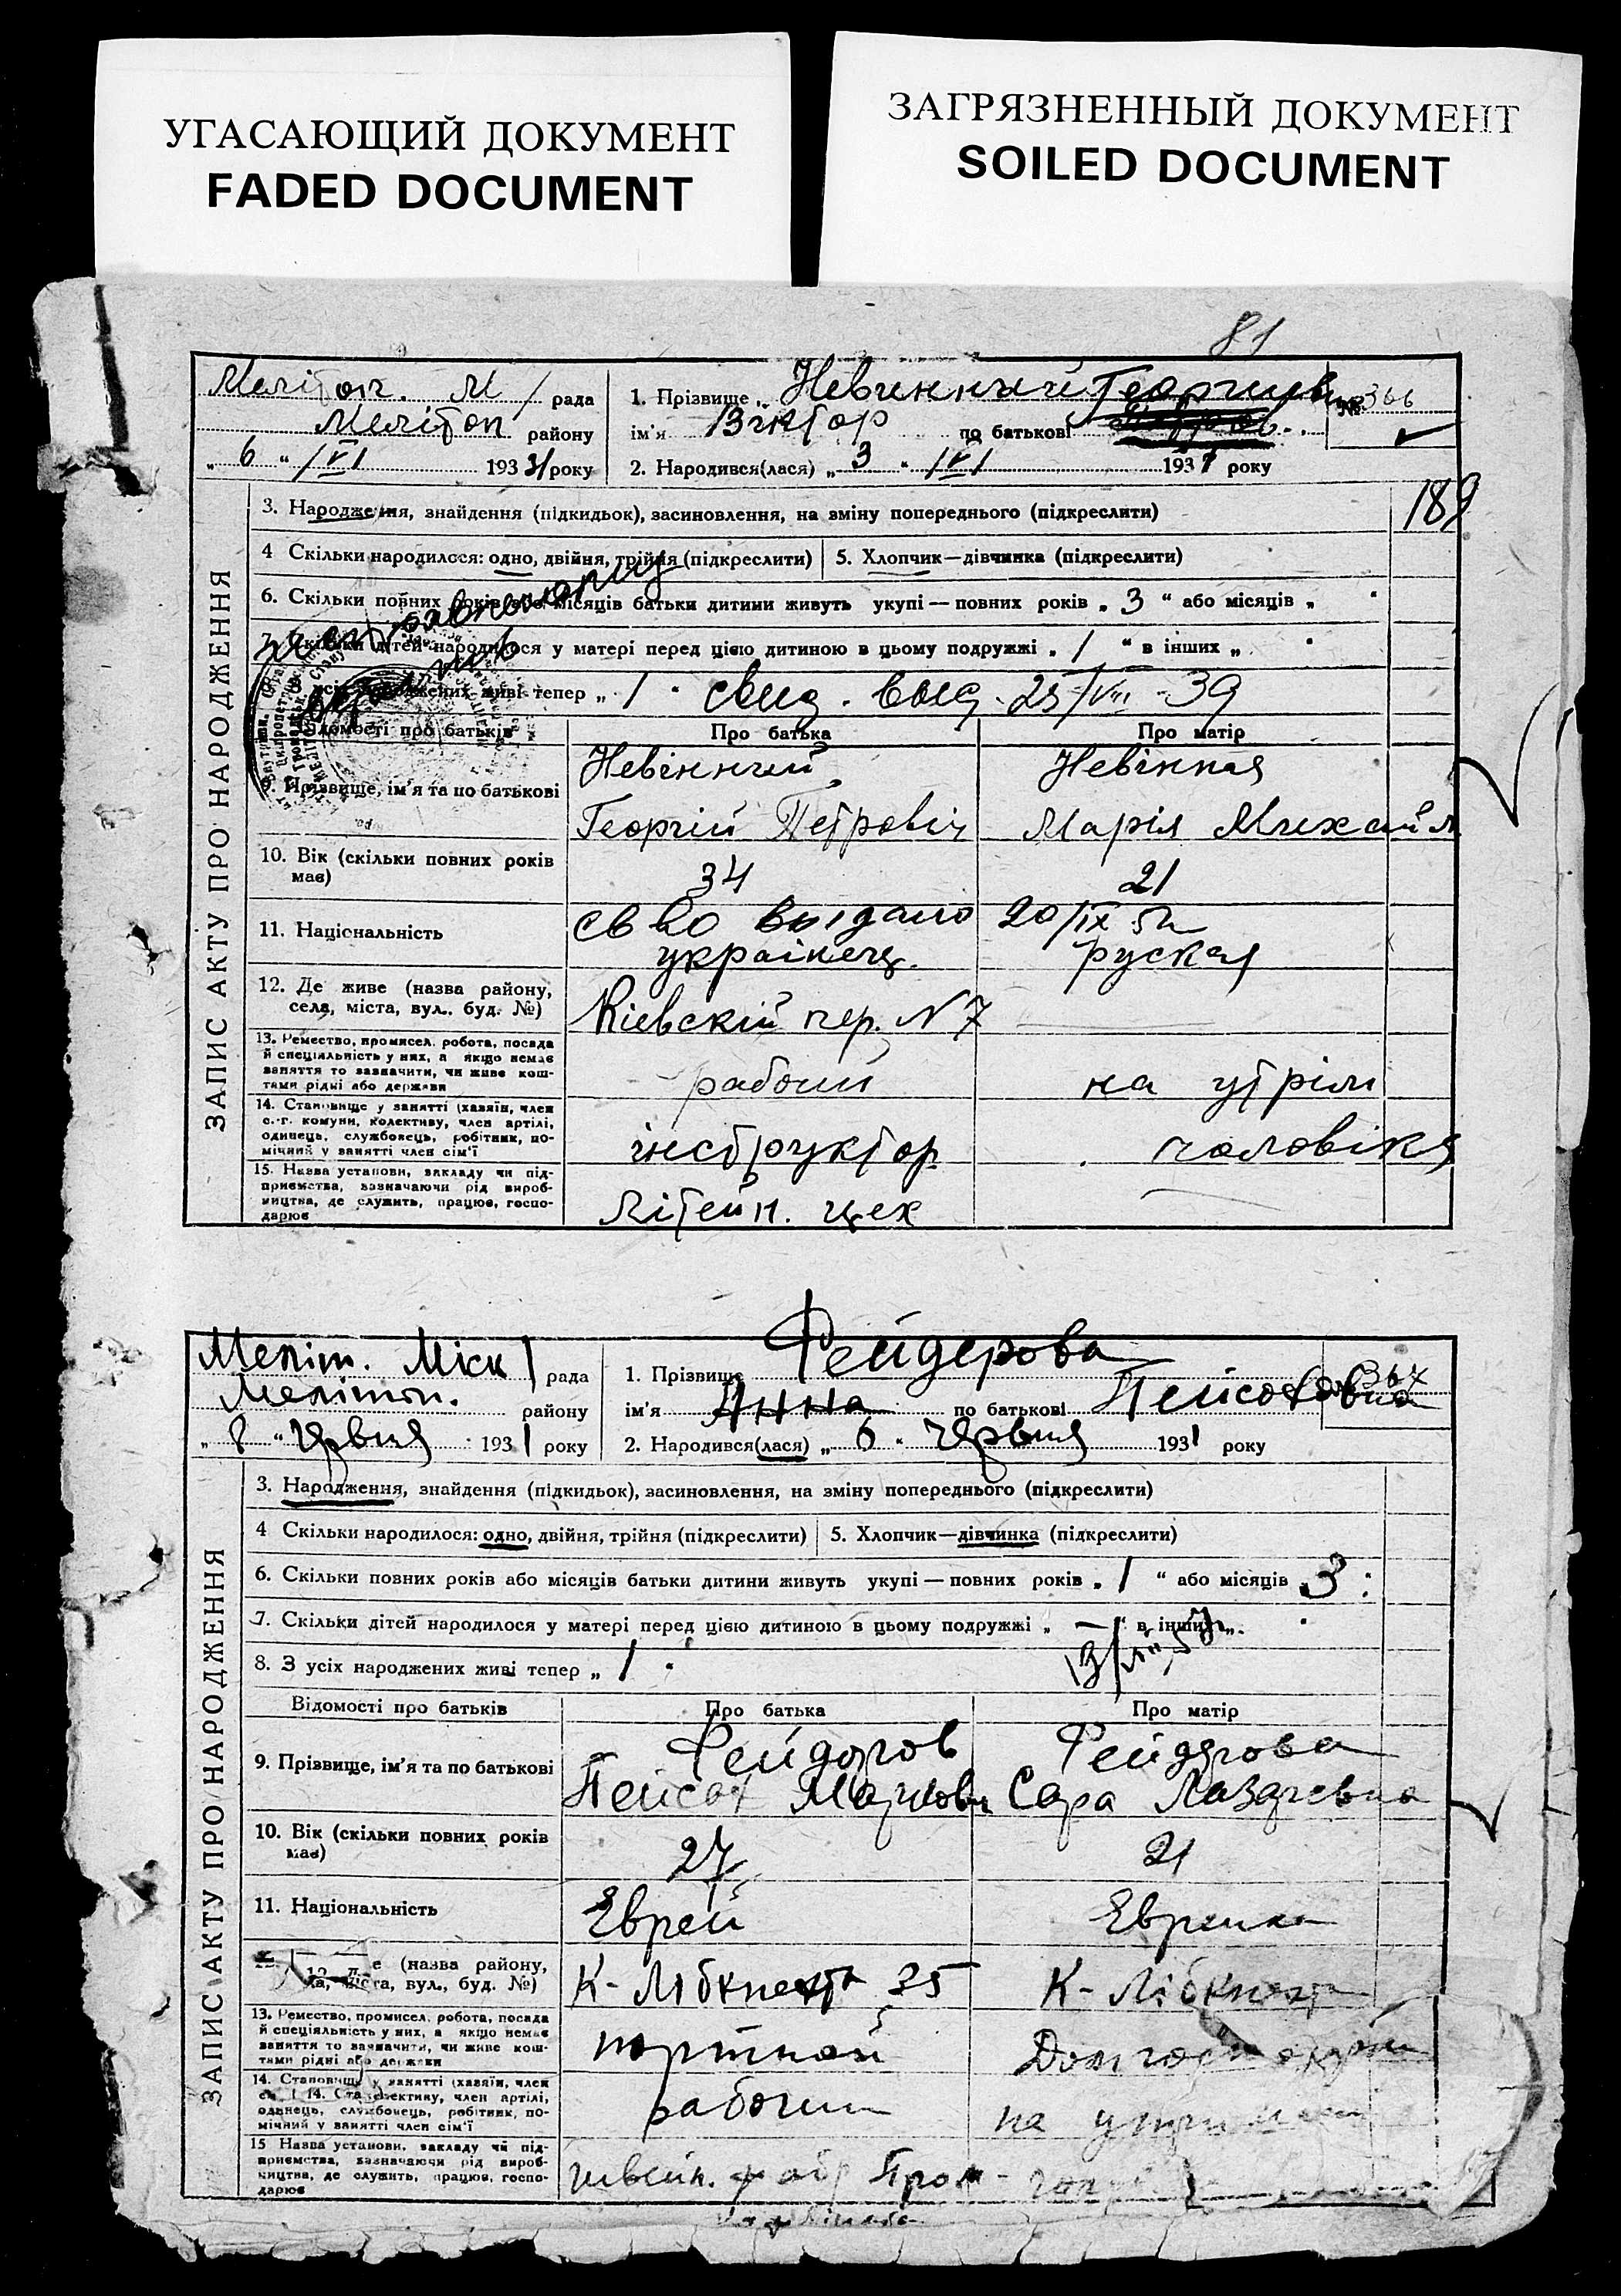 УГАСАЮЩИЙ ДОКУМЕНТ
FADED DOCUMENT
ЗАГРЯЗНЕННЫЙ ДОКУМЕНТ
SOILED DOCUMENT
81
Меліт. М рада
Мелітоп району
„ 6 “ /VI 1931 року
1. Прізвище Невинный Георгиев
ім'я Віктор по батькові
№ 366
2. Народився(лася) „ 3 “ /VI 1931 року
ЗАПИС АКТУ ПРО НАРОДЖЕННЯ
3. Народження, знайдення (підкидьок), засиновлення, на зміну попереднього (підкреслити)
189
4 Скільки народилося: одно, двійня, трійня (підкреслити) 5. Хлопчик—дівчинка (підкреслити)
6. Скільки повних років або місяців батьки дитини живуть укупі — повних років „ 3 “ або місяців „ “
7. Скільки дітей народилося у матері перед цією дитиною в цьому подружжі „ 1 “ в інших „ “
усіх народжених живі тепер „ 1 “ свид. выд. 25/VIII - 39
Відомості про батьків Про батька Про матір
9. Прізвище, ім'я та по батькові
Невінний Невінная
Георгій Петровіч Марія Михайл
10. Вік (скільки повних років має) 34 21
св во выдано 20/IX 5
11. Національність українец. руская
12. Де живе (назва району, села, міста, вул., буд. №) Кіевскій пер. N 7
13. Ремество, промисел, робота, посада
й спеціяльність у них, а якщо немає
заняття то зазначити, чи живе кош-
тами рідні або держави
рабочий на утрім
14. Становище у занятті (хазяїн, член
с.-г. комуни, колективу, член артілі,
одинець, службовець, робітник, по-
мічний у занятті член сім'ї
інструктор. чоловіка
15. Назва установи, закладу чи під-
приємства, зазначаючи рід вироб-
ництва, де служить, працює, госпо-
дарює
Літейн. цех
Меліт. Міск рада
Мелітоп. району
„ 8 “ Червня 1931 року
1. Прізвище Фейдерова
ім'я Анна по батькові Пейсаховна
367
2. Народився(лася) „ 6 “ Червня 1931 року
ЗАПИС АКТУ ПРО НАРОДЖЕННЯ
3. Народження, знайдення (підкидьок), засиновлення, на зміну попереднього (підкреслити)
4 Скільки народилося: одно, двійня, трійня (підкреслити) 5. Хлопчик—дівчинка (підкреслити)
6. Скільки повних років або місяців батьки дитини живуть укупі — повних років „ 1 “ або місяців „ 3 “
7. Скільки дітей народилося у матері перед цією дитиною в цьому подружжі „ — “ в інших „ “
8. З усіх народжених живі тепер „ 1 “
Відомості про батьків Про батька Про матір
9. Прізвище, ім'я та по батькові
Фейдоров Фейдерова
Пейсах Маркович Сара Лазаревна
10. Вік (скільки повних років має) 27 21
11. Національність Еврей Еврейка
(назва району, вул., буд. №) К- Лібкнехта 35 К- Лібкнехт
13. Ремество, промисел, робота, посада
й спеціяльність у них, а якщо немає
заняття то зазначити, чи живе кош-
тами рідні або держави
портной
14. Становище у занятті (хазяїн, член
колективу, член артілі,
одинець, службовець, робітник, по-
мічний у занятті член сім'ї
рабочий на
15 Назва установи, закладу чи під-
приємства, зазначаючи рід вироб-
ництва, де служить, працює, госпо-
дарює
швейн. фабр Пром-